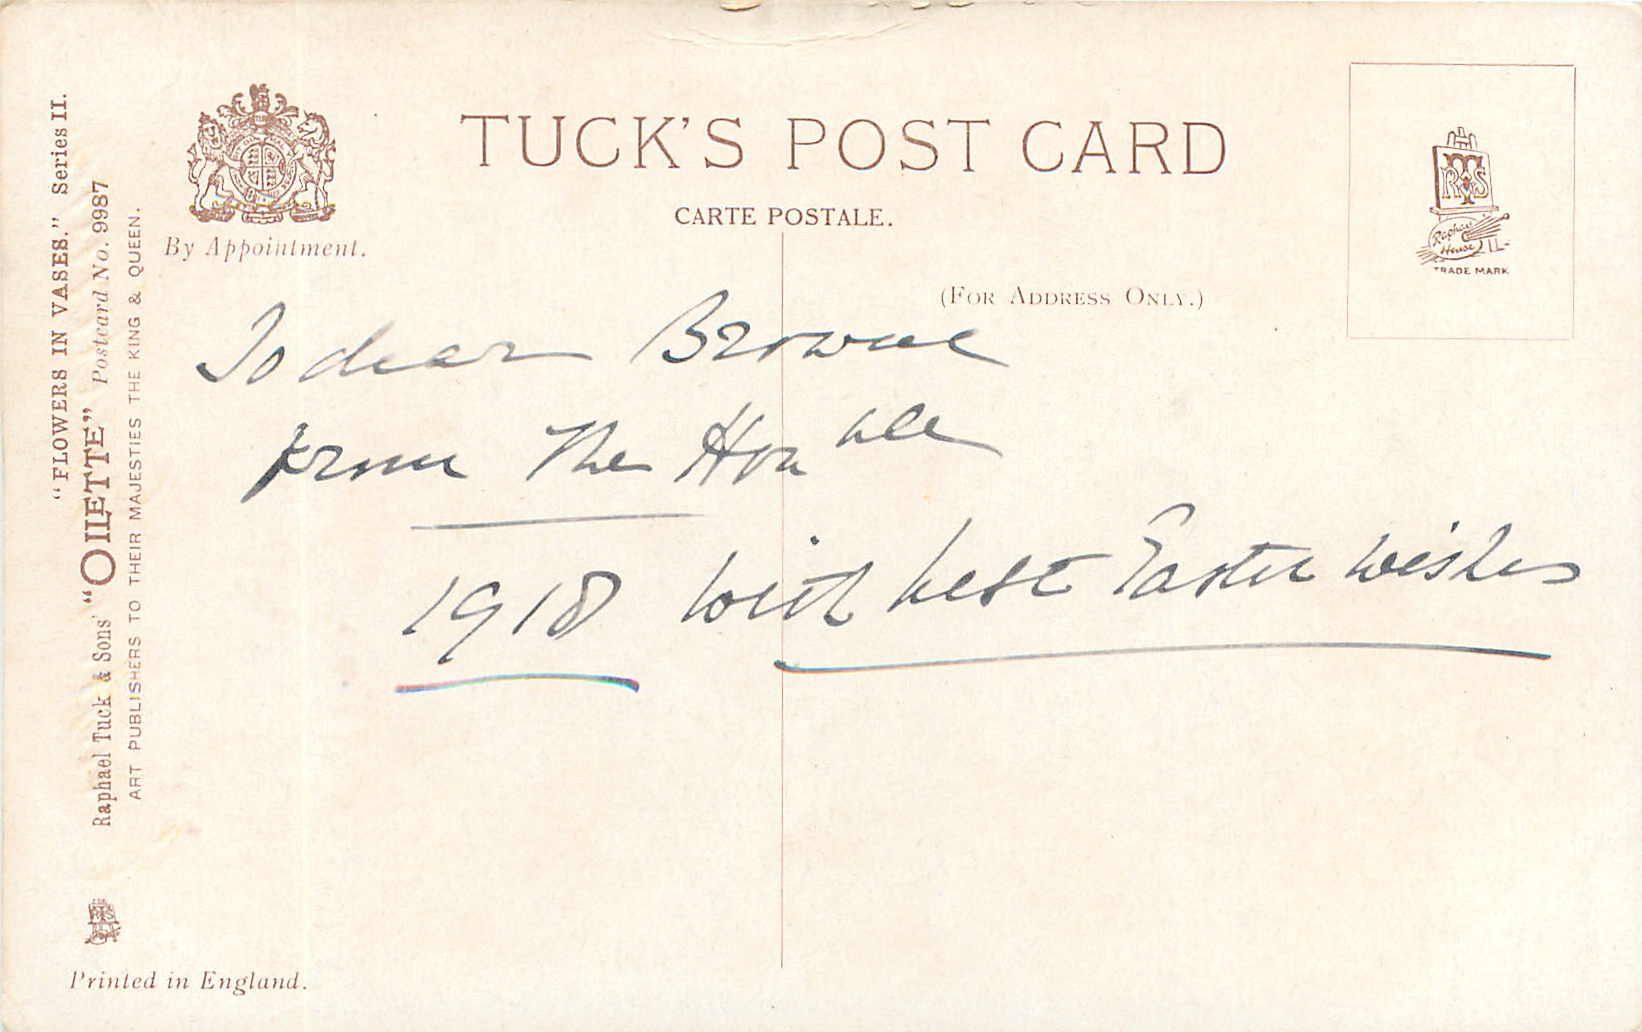 TUCK'S POST CARD
CARTE POSTALE.
By Appointment.
(FOR ADDRESS ONLY.)
RTS
Raphael House
TRADE MARK
"FLOWERS IN VASES." Series II.
Raphael Tuck & Sons' "OILETTE" Postcard No. 9987
ART PUBLISHERS TO THEIR MAJESTIES THE KING & QUEEN.
To dear Browne
from The Honble
1918 with best Easter wishes
RTS
Printed in England.